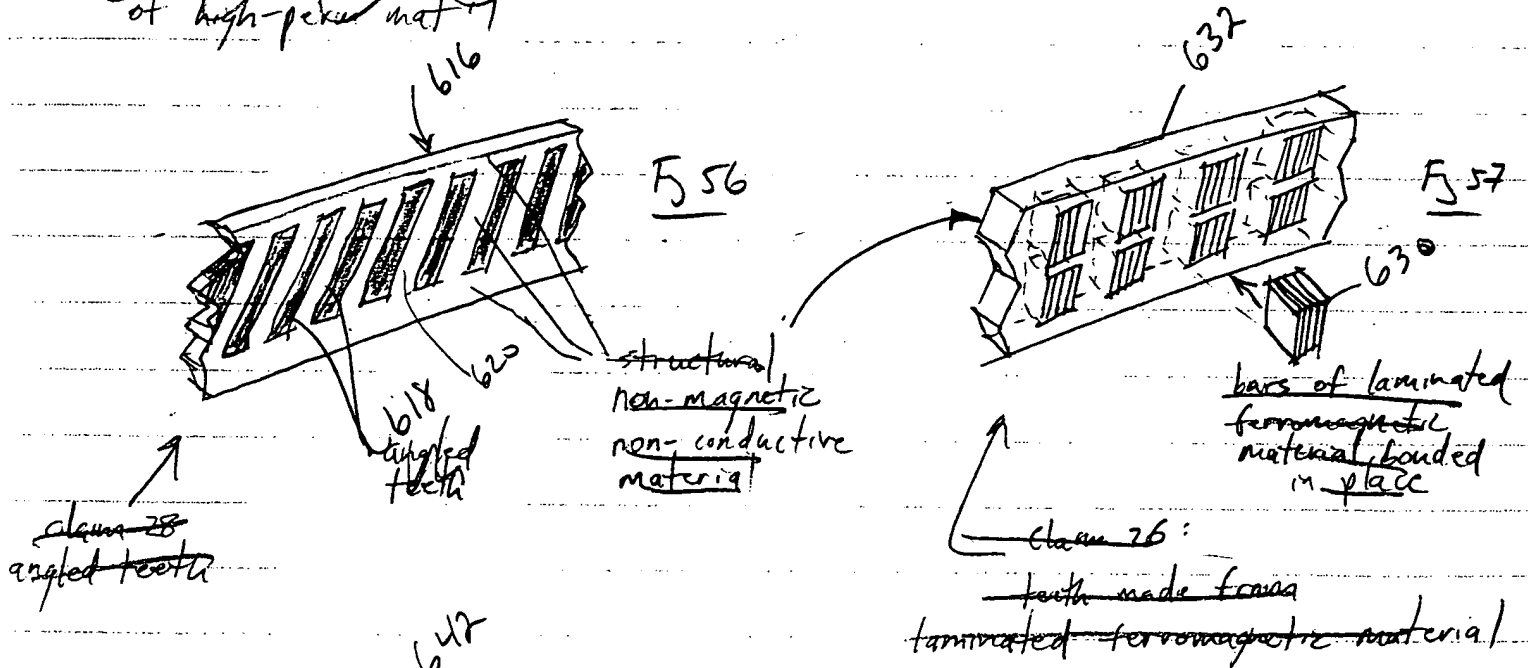 of high-perm mat'l
616
632
Fig 56
Fig 57
630
620
618
angled
teeth
structural
non-magnetic
non-conductive
material
bars of laminated
ferromagnetic
material bonded
in place
claim 28
angled teeth
claim 26:
teeth made from
laminated ferromagnetic material
642